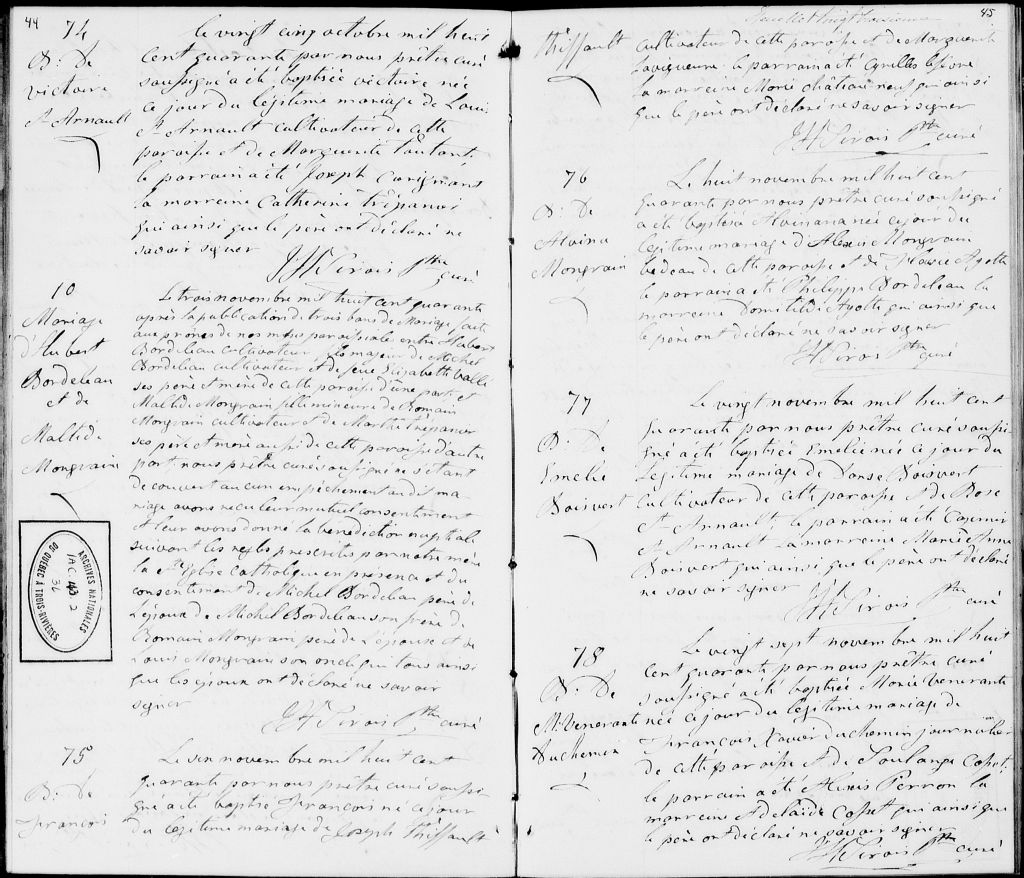 44
74
B: De
victoire
St Arnault
Le vingt cinq octobre mil huit
cent quarante par nous prêtre curé
soussigné a été baptisée victoire née
ce jour du légitime mariage de Louis
St Arnault cultivateur de cette
paroisse et de Marguerite
le parrain a été Joseph Carignant
la marreine Catherine Trépanié
qui ainsi que le père ont déclaré ne
savoir signer
Ptre curé
10
Mariage
d'Hubert
Bordeleau
et de
Maltide
Mongrain
Le trois novembre mil huit cent quarante
après la publication de trois bans de Mariage faite
aux prônes de nos messes paroissiales entre Hubert
Bordeleau cultivateur fils majeur de Michel
Bordeleau cultivateur et de feue Elizabeth Vallé
ses père et mère de cette paroisse d'une part et
Maltide Mongrain fille mineure de Romain
Mongrain cultivateur et de Marthe Trépanier
ses père et mère aussi de cette paroisse d'autre
part, nous prêtre curé soussigné ne s'étant
découvert aucun empêchement au dit ma-
riage avons reçu leur mutuel consentement
et leur avons donné la bénédiction nuptiale
suivant les regles prescrites par notre mère
la Ste Eglise Catholique en présence et du
consentement de Michel Bordeleau père de
l'époux de Michel Bordeleau son frère de
Romain Mongrain père de l'épouse et de
Louis Mongrain son oncle qui tous ainsi
que les époux ont déclaré ne savoir
signer
Ptre curé
ARCHIVES NATIONALES
DU QUÉBEC À TROIS-RIVIÈRES
75
B: De
François
Le six novembre mil huit cent
quarante par nous prêtre curé soussi-
gné a été baptisé François né ce jour
du légitime mariage de Joseph Thiffault
45
feuillet vingt troisième
Thiffault
cultivateur de cette paroisse et de Marguerite
le parrain a été Cyrille
la marreine Marie Châteauneuf qui ainsi
que le père ont déclaré ne savoir signer
Ptre curé
76
B: De
Alvina
Mongrain
Le huit novembre mil huit cent
quarante par nous prêtre curé soussigné
a été baptisée Alvina née ce jour du
légitime mariage d'Alexis Mongrain
bedeau de cette paroisse et de Ayotte
le parrain a été Philippe Bordeleau la
marreine Domitilde Ayotte qui ainsi que
le père ont déclaré ne savoir signer
Ptre curé
77
B: De
Emelie
Boisvert
Le vingt novembre mil huit cent
quarante par nous prêtre curé soussi-
gné a été baptisée Emelie née ce jour du
légitime mariage de Boisvert
cultivateur de cette paroisse et de Rose
St Arnault, le parrain a été Casimir
St Arnault la marreine Marie Anne
Boisvert qui ainsi que le père ont déclaré
ne savoir signer
Ptre curé
78
B: De
M: Venerante
Duchemin
Le vingt sept novembre mil huit
cent quarante par nous prêtre curé
soussigné a été baptisée Marie Venerante
née ce jour du légitime mariage de
François Xavier Duchemin journalier
de cette paroisse et de Soulange
le parrain a été Alexis Perron la
marreine Adelaide qui ainsi que
le père ont déclaré ne savoir signer
Ptre curé